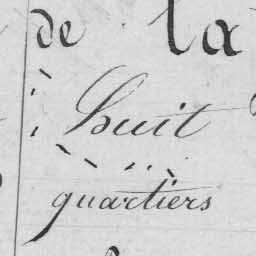 de la
huit
quartiers